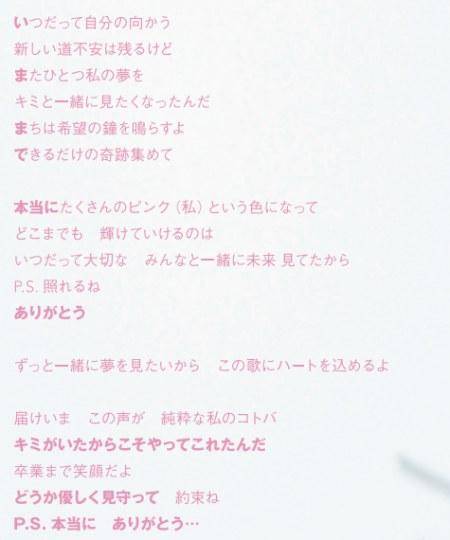 いつだって自分の向かう
新しい道不安は残るけど
またひとつ私の夢を
キミと一緒に見たくなったんだ
まちは希望の鐘を鳴らすよ
できるだけの奇跡集めて
本当にたくさんのピンク（私）という色になって
どこまでも　輝けていけるのは
いつだって大切な　みんなと一緒に未来 見てたから
P.S. 照れるね
ありがとう
ずっと一緒に夢を見たいから　この歌にハートを込めるよ
届けいま　この声が　純粋な私のコトバ
キミがいたからこそやってこれたんだ
卒業まで笑顔だよ
どうか優しく見守って　約束ね
P.S. 本当に　ありがとう…